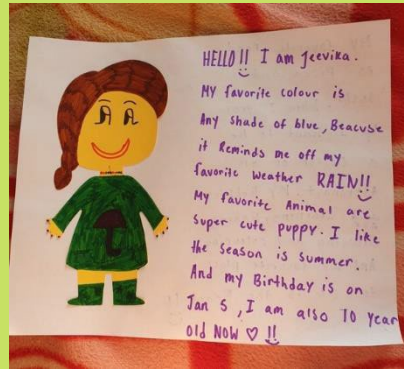 HELLO!! I am Jeevika.
My favorite colour is
Any shade of blue, Beacuse
it Reminds me off my
favorite weather RAIN!!
My favorite Animal are
super cute puppy. I like
the season is summer.
And my Birthday is on
Jan 5, I am also 10 year
old NOW ♡ !!